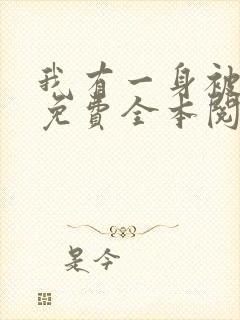 我有一身被
免费全本阅
是今